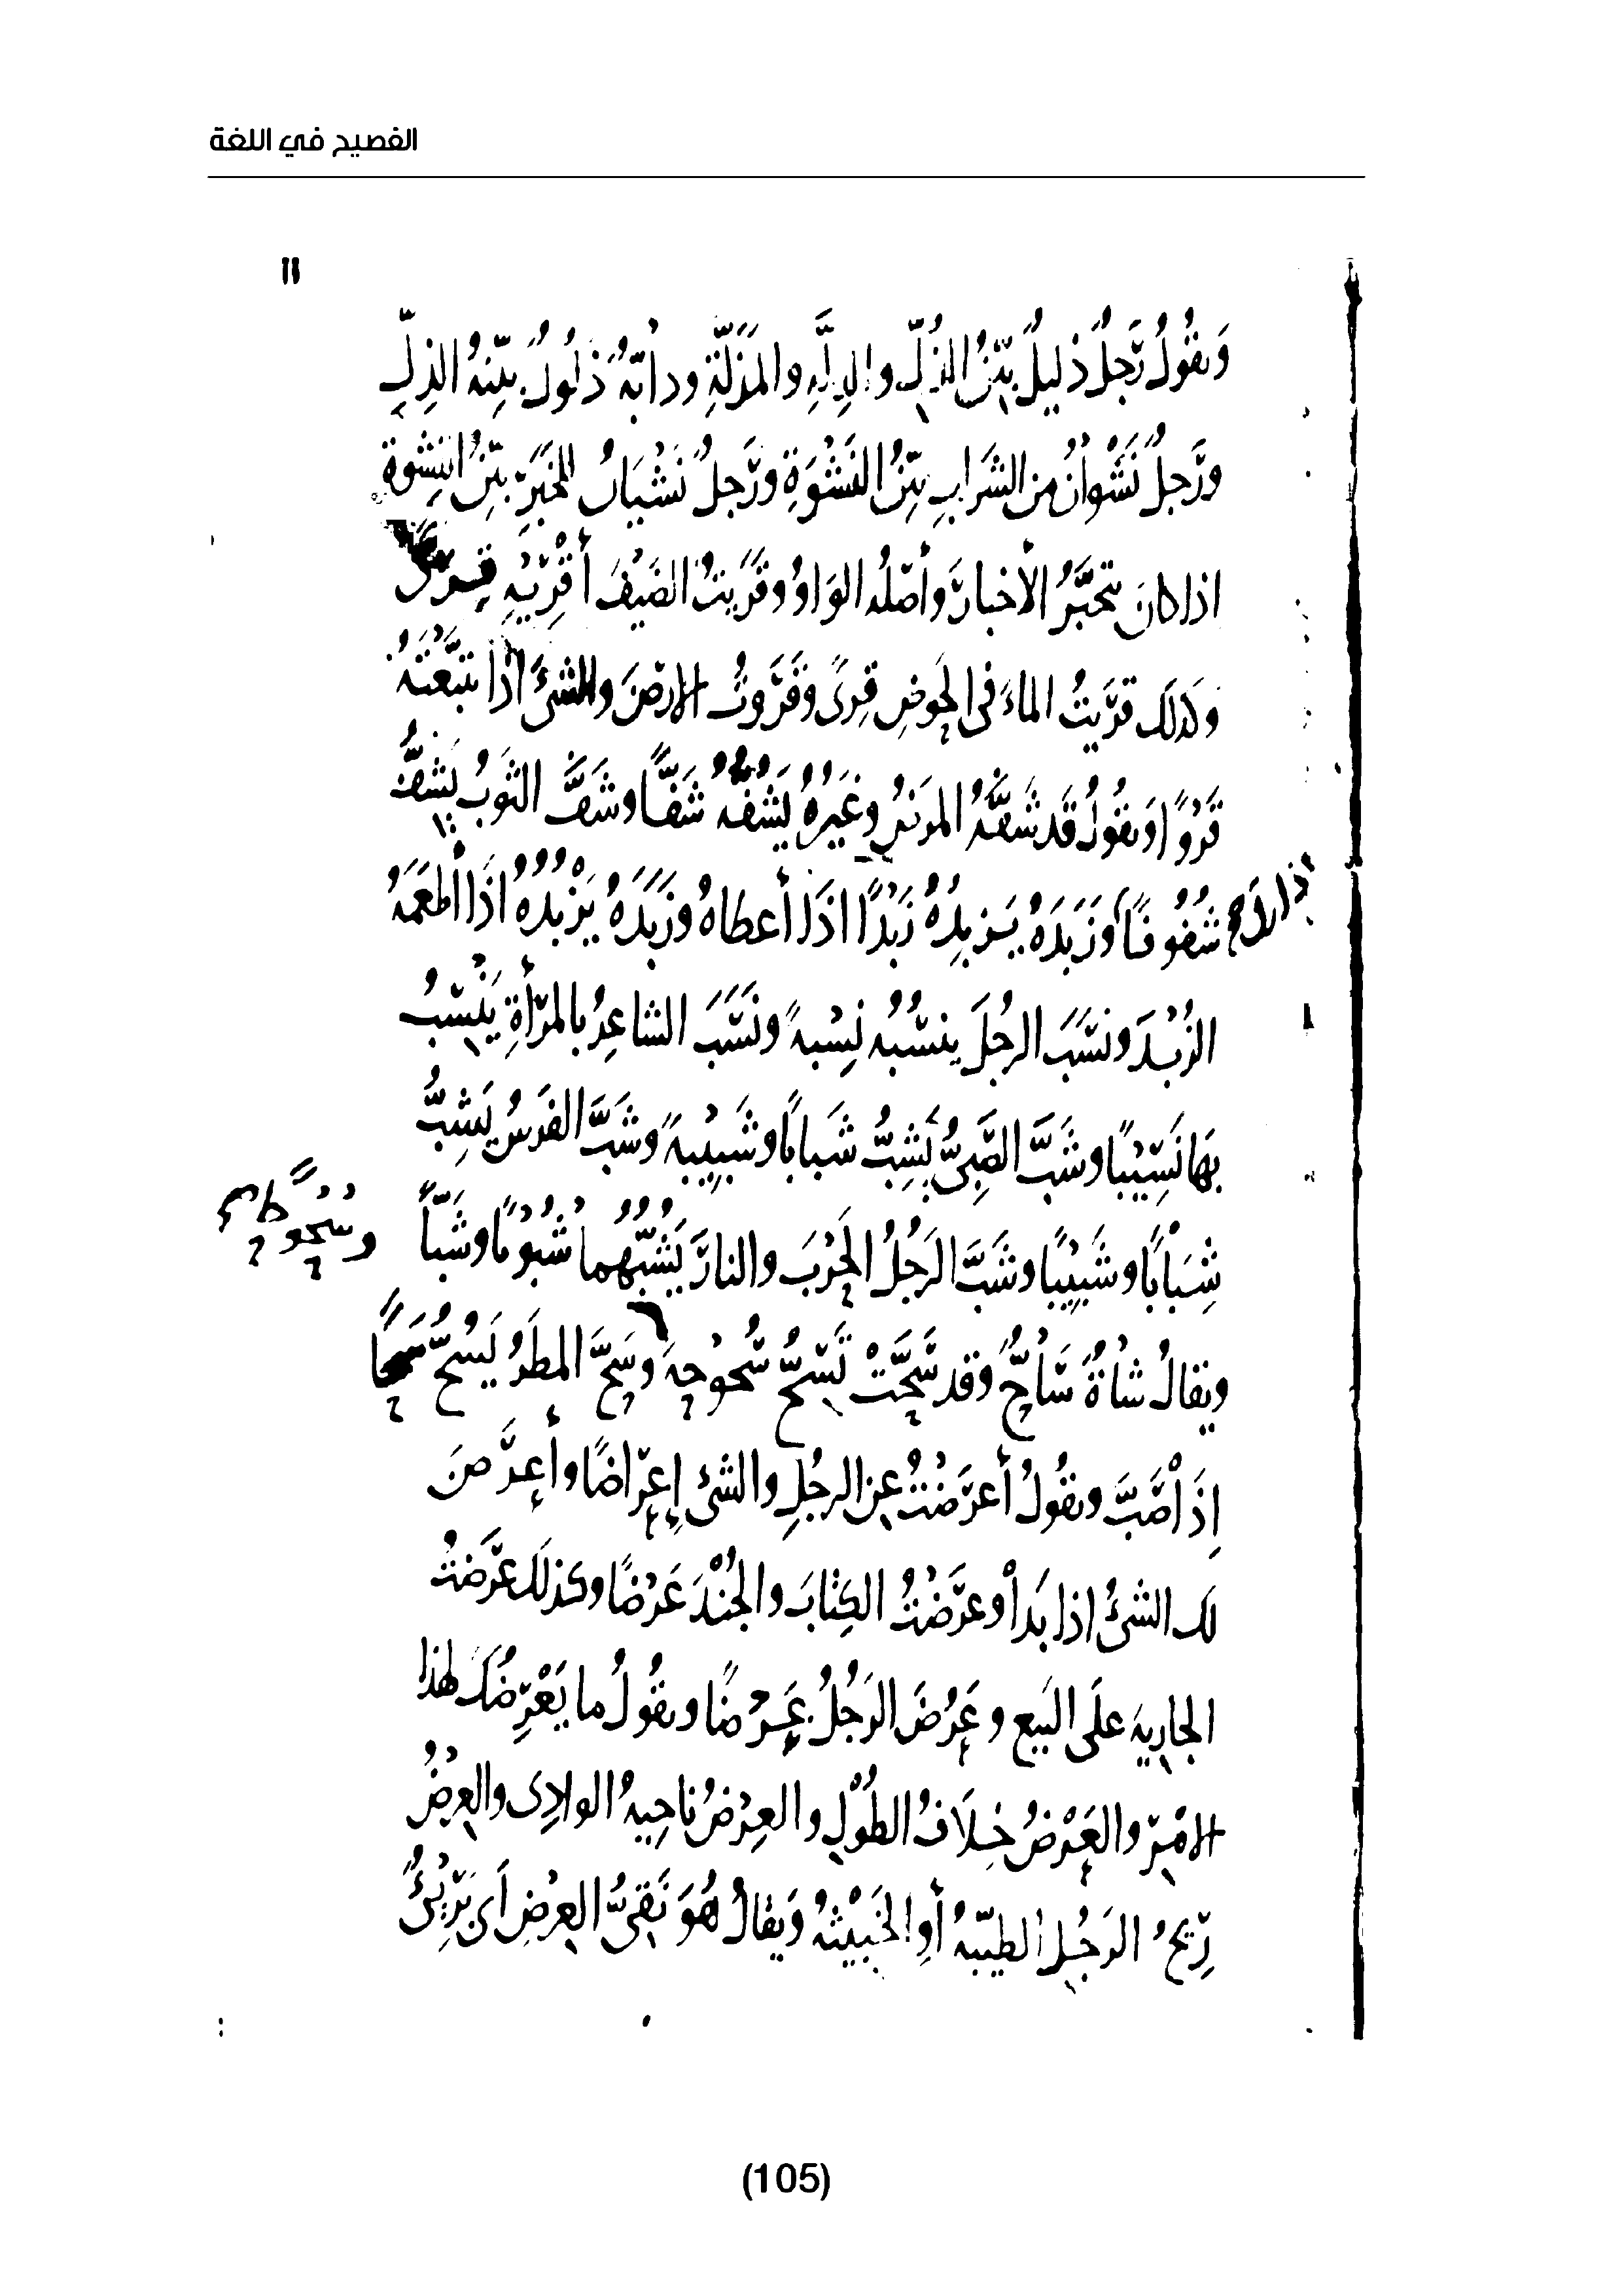 الفصيح في اللغة
١١
وَتقُولُ رَجلٌ ذليلٌ بيّنُ الذُلِّ والذِلَّةِ والمَذَلَّةِ ودابّةٌ ذَلُولٌ بيّنةُ الذِلِّ
ورَجلٌ نَشْوانُ من الشَرابِ بيّنُ النَشْوَةِ ورَجلٌ نَشْيَانُ للخَبَرِ بيّنُ النِشْوةِ
اذا كانَ يتخبَّرُ الأخبارَ وأصلُه الوَاوُ وقَرَيتُ الضَيْفَ أقْرِيْهِ قِرىً
وكذلك قرَيتُ الماءَ في الحَوضِ قِرىً وقَرَوتُ الارضَ والشئَ اذا تتبَّعْتَهُ
قَرْوًا وَتقُولُ قَد شَفَّهُ المرَضُ وغَيْرُهُ يَشُفُّهُ شَفًّا وشَفَّ الثَوبُ يَشِفُّ
شُفُوفًا وَزَبَدَهُ يَزبِدُهُ زَبْدًا اذَا أعطاهُ وزَبَدَهُ يَزْبُدُهُ اذَا أطعَمَهُ
الزُبْدَ ونسَبَ الرجُلَ ينسُبُه نِسْبةً ونَسَبَ الشاعِرُ بالمرْأةِ يَنْسِبُ
بهَا نَسِيْبًا وشَبَّ الصَبِىُّ يَشِبُّ شَبابًا وشَبِيْبةً وشَبَّ الفَرَسُ يَشِبُّ
شِبَابًا وشَبِيْبًا وشَبَّ الرَجُلُ الحَرْبَ والنارَ يَشُبُّهُما شُبُوْبًا وشَبّاً
ويقالُ شاةٌ سَاحٌّ وقد سَحَّتْ تَسِحُّ سُحوْحةً وسَحَّ المطَرُ يَسُحُّ سَحًّا
إذَا صَبَّ وتقُولُ أعرَضْتُ عن الرجُلِ والشئِ إعرَاضًا وأعرَضَ
لك الشئُ اذا بَدا وعرَضْتُ الكِتَابَ والجُنْدَ عَرْضًا وكذلك عرَضتُ
الجاريةَ علَى البَيع وعَرُضَ الرَجُلُ عِرَضًا وتقُولُ ما يَعْرِضُكَ لهذا
الامْرِ والعَرْضُ خِلَافُ الطُوْلِ والعِرْضُ ناحِيةُ الوادِى والعِرْضُ
رِيْحُ الرَجُلِ الطيّبةُ أو الخَبِيْثةُ وَيقالُ هُوَ نَقِىُّ العِرْضِ أى بَرِيْئٌ
(105)